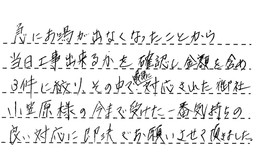 急にお湯が出なくなったことから
当日工事出来るかを確認し金額を含め
3件に絞り、その中で迅速に対応された御社
小笠原様の今まで受けた一番気持ちの
良い対応に即決でお願いさせて頂きました。